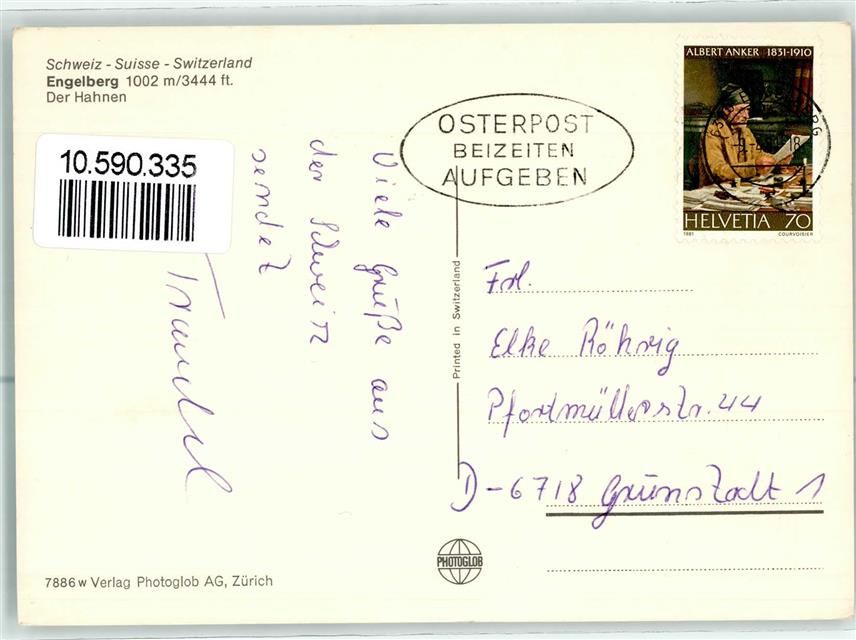 Schweiz - Suisse - Switzerland
Engelberg 1002 m/3444 ft.
Der Hahnen
10.590.335
OSTERPOST
BEIZEITEN
AUFGEBEN
ALBERT ANKER 1831-1910
18
HELVETIA 70
1981 COURVOISIER
Viele Grüße aus
der Schweiz
sendet
Traudel
Printed in Switzerland
Frl.
Elke Röhrig
Pfortmüllerstr. 44
D-6718 Grünstadt 1
PHOTOGLOB
7886 w Verlag Photoglob AG, Zürich